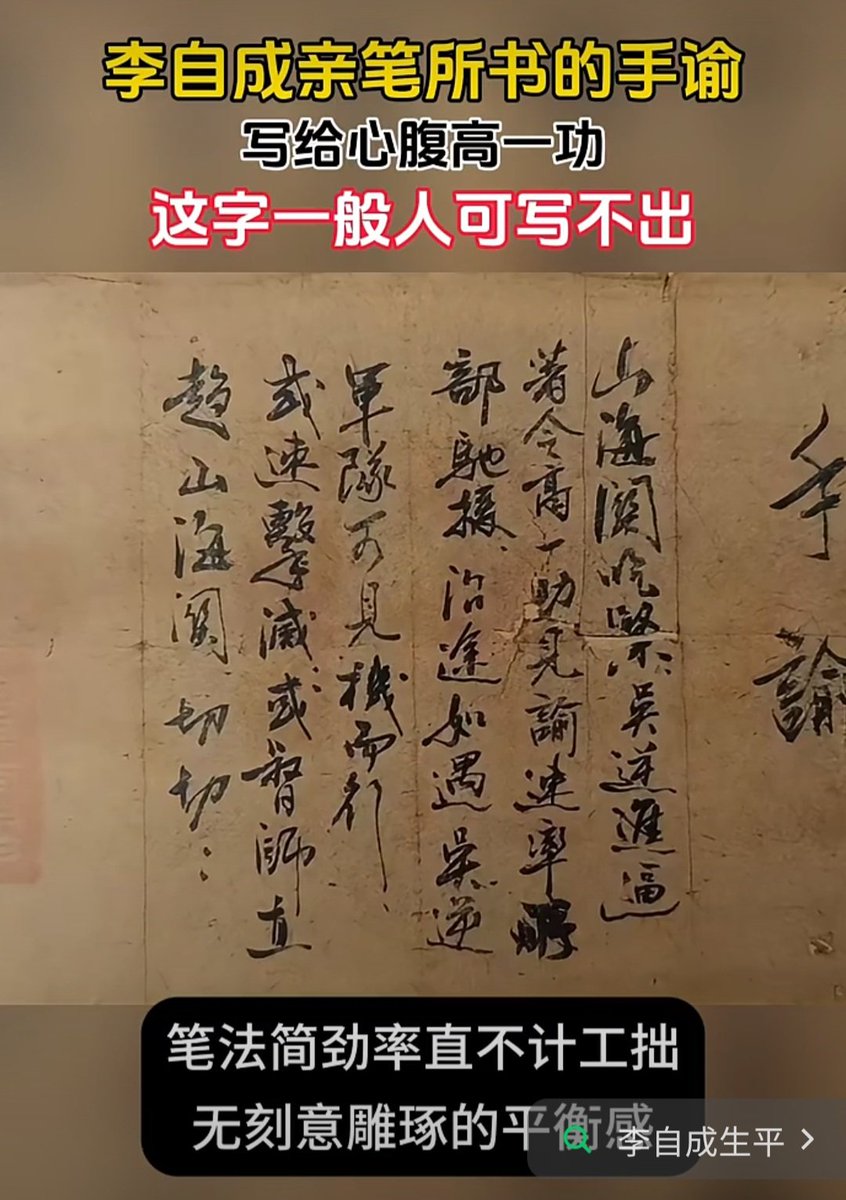 李自成亲笔所书的手谕
写给心腹高一功
这字一般人可写不出
手諭
山海関吃緊吳逆進逼
著令高一功見諭速率
部馳援沿途如遇吳逆
軍隊可見機而行
或速擊滅或督師直
趨山海関切切
笔法简劲率直不计工拙
无刻意雕琢的平衡感
李自成生平